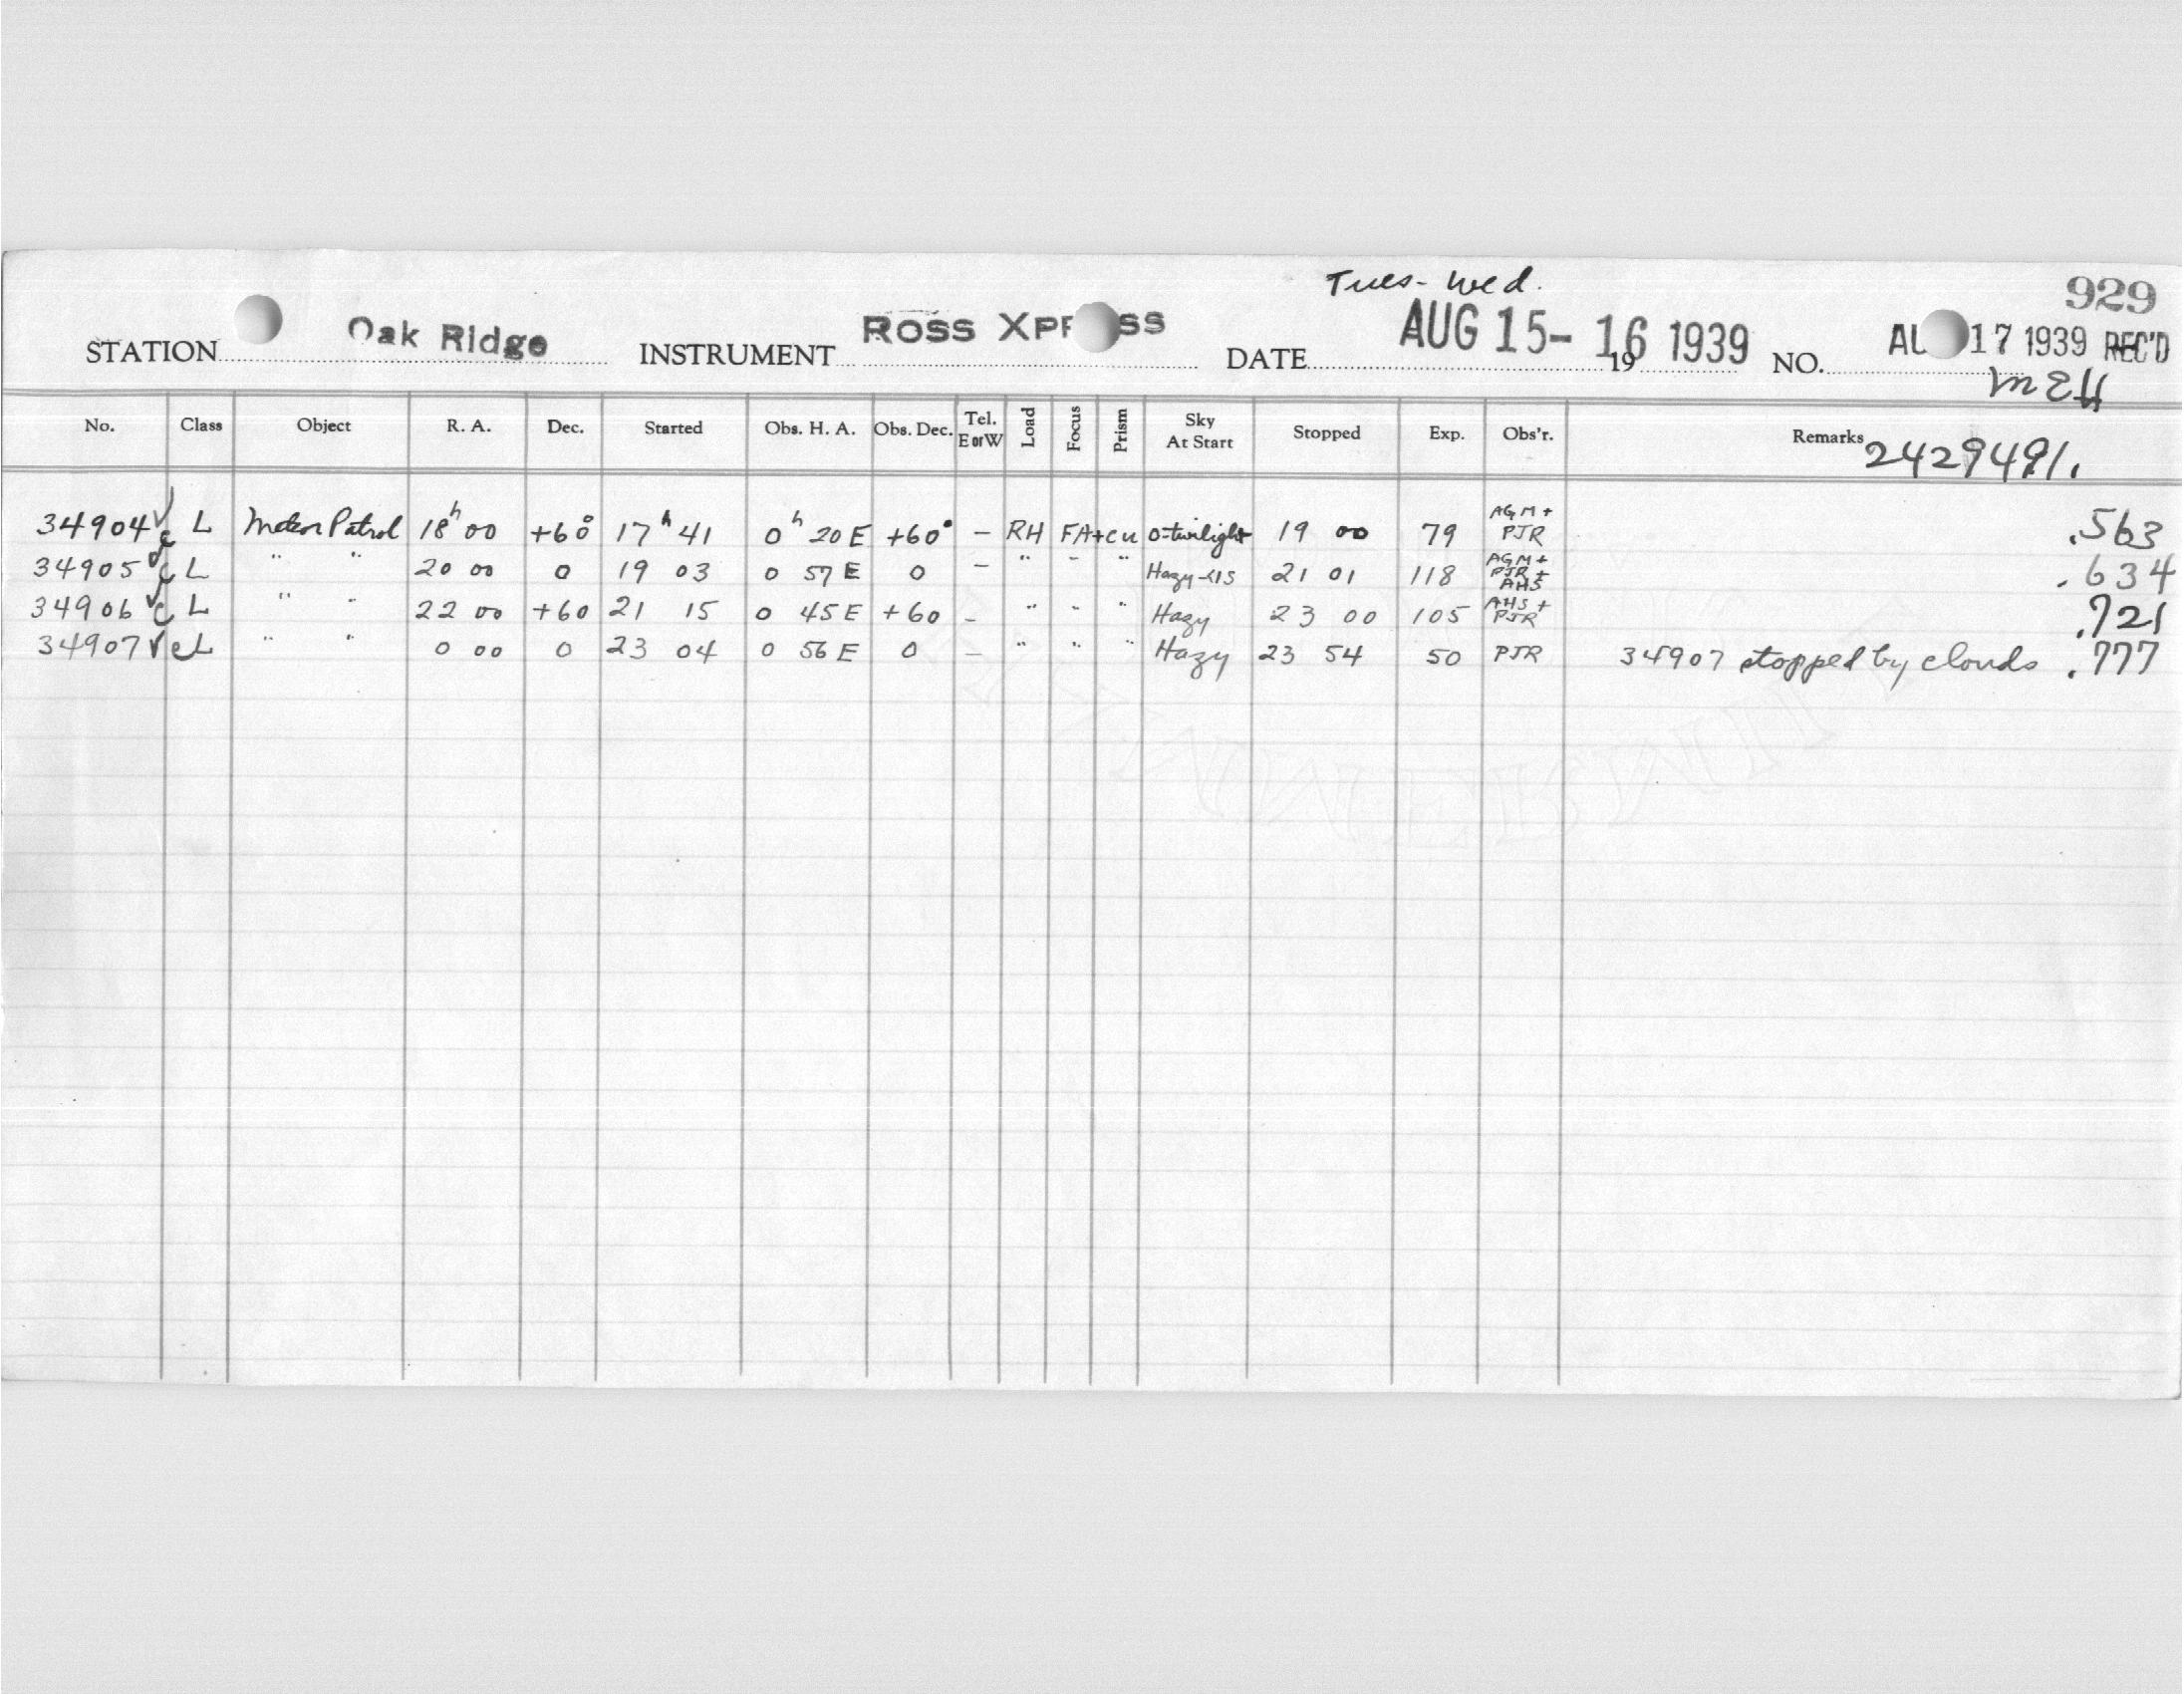 Tues - Wed.
929
STATION Oak Ridge INSTRUMENT ROSS XPRESS DATE AUG 15-16 1939 19 NO. AUG 17 1939 REC'D
No. Class Object R. A. Dec. Started Obs. H. A. Obs. Dec. Tel. E or W Load Focus Prism Sky At Start Stopped Exp. Obs'r. Remarks
2429491.
34904 ✓ c L Meteor Patrol 18ʰ 00 +60° 17ʰ 41 0ʰ 20 E +60° – RH FA+cu 0-twilight 19 00 79 AGM + PJR .563
34905 ✓ c L " " 20 00 0 19 03 0 57 E 0 – " " " Hazy-<15 21 01 118 AGM + PJR + AHS .634
34906 ✓ c L " " 22 00 +60 21 15 0 45 E +60 – " " " Hazy 23 00 105 AHS + PJR .721
34907 ✓ c L " " 0 00 0 23 04 0 56 E 0 – " " " Hazy 23 54 50 PJR 34907 stopped by clouds .777